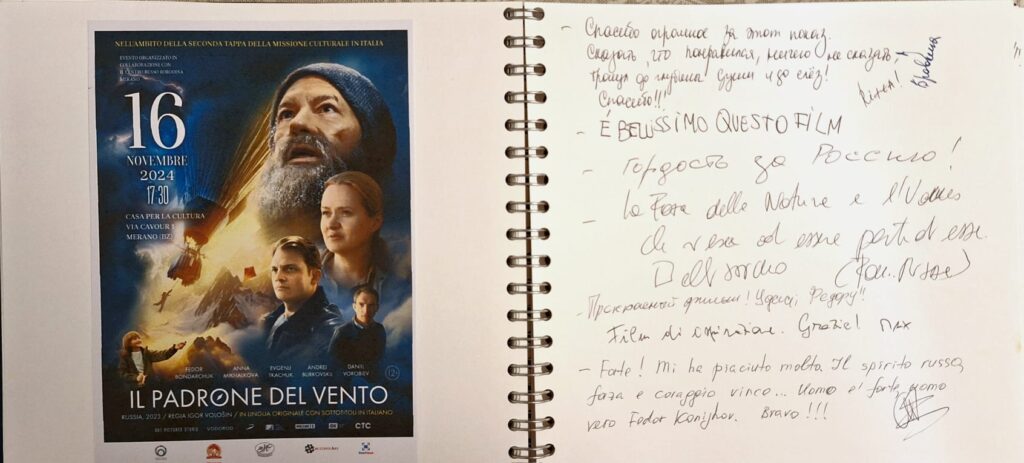 NELL'AMBITO DELLA SECONDA TAPPA DELLA MISSIONE CULTURALE IN ITALIA
EVENTO ORGANIZZATO IN
COLLABORAZIONE CON
IL CENTRO RUSSO BORODINA
MERANO
16
NOVEMBRE
2024
17:30
CASA PER LA CULTURA
VIA CAVOUR 1
MERANO (BZ)
FEDOR
BONDARCHUK
ANNA
MIKHALKOVA
EVGENIJ
TKACHUK
ANDREJ
BURKOVSKIJ
DANIIL
VOROBJEV
12+
IL PADRONE DEL VENTO
RUSSIA, 2023 / REGIA IGOR VOLOŠIN / IN LINGUA ORIGINALE CON SOTTOTITOLI IN ITALIANO
VODOROD
СТС
- Спасибо огромное за этот показ.
Сказать, что понравился, ничего не сказать
до глубины души и до слёз!
Спасибо!!!
- É BELLISSIMO QUESTO FILM
- Гордость за Россию!
- La Forza della Natura e l'Uomo
che
- Прекрасный фильм! Удачи, Федору!!
Film di Grazie!
- Forte! Mi ha piaciuto molto. Il spirito russo,
foza e coraggio vince... Uomo e' forte, uomo
vero Fedor Konjhov. Bravo!!!